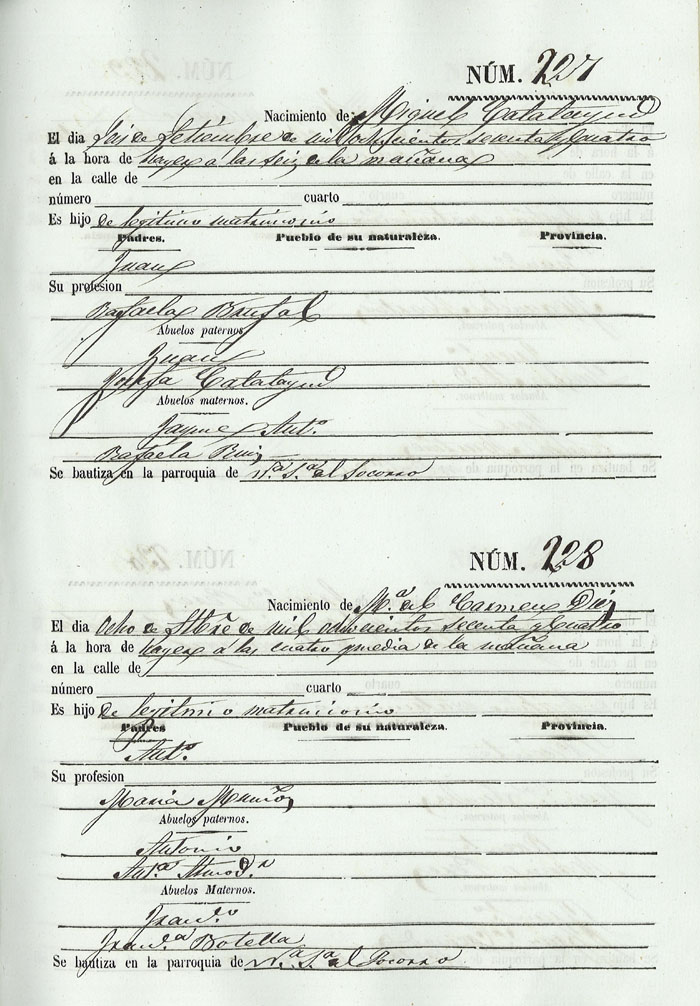 NÚM. 227
Nacimiento de Miguel Catalayud
El dia seis de Setiembre de mil ochocientos sesenta y cuatro
á la hora de hayer a las seis de la mañana
en la calle de
número cuarto
Es hijo de legitimo matrimonio
Padres. Pueblo de su naturaleza. Provincia.
Juan
Su profesion
Rafaela Brufal
Abuelos paternos.
Juan
Josefa Catalayud
Abuelos maternos.
Jayme Antº
Rafaela Ruiz
Se bautiza en la parroquia de Nª Sª del Socorro
NÚM. 228
Nacimiento de Mª del Carmen Diez
El dia Ocho de Stbre de mil ochocientos secenta y cuatro
á la hora de hayer a las cuatro y media de la mañana
en la calle de
número cuarto
Es hijo de legitimo matrimonio
Padres Pueblo de su naturaleza. Provincia.
Antº
Su profesion
Maria Muñoz
Abuelos paternos.
Antonio
Antª
Abuelos Maternos.
Franº
Franª Botella
Se bautiza en la parroquia de Nª Sª del Socorro